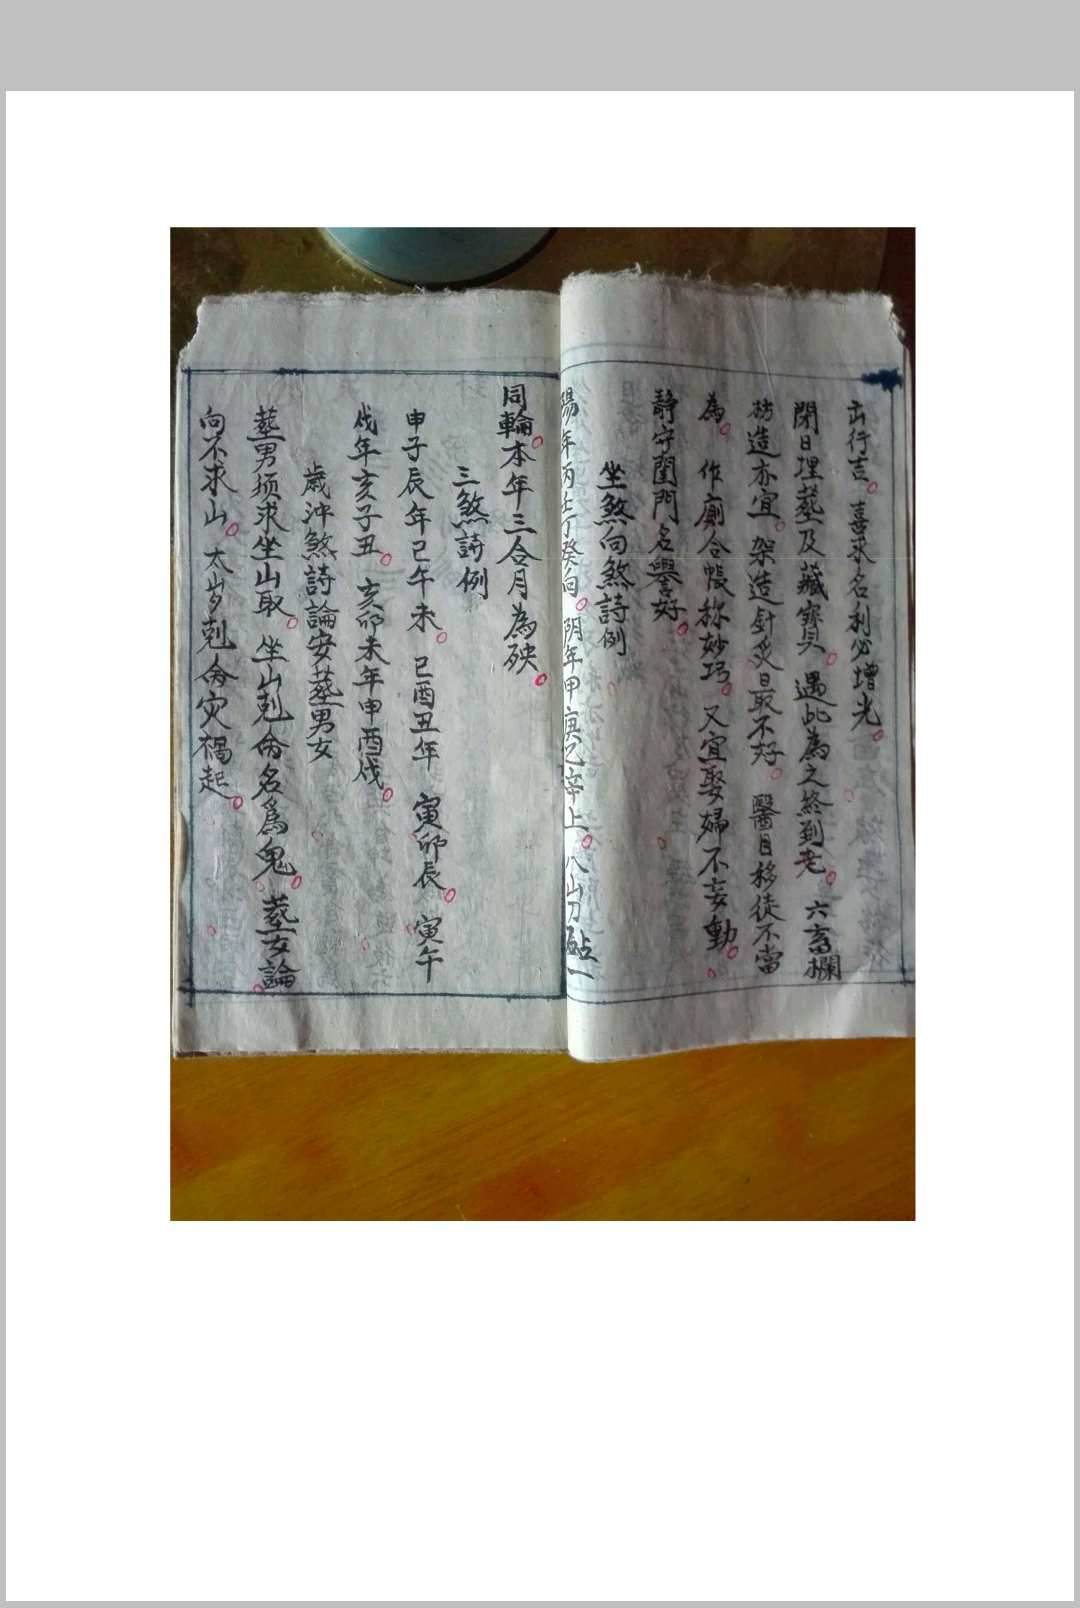 出行吉 喜求名利必增光
閉日埋塟及藏寳 遇此為之終到老 六畜欄
枋造亦宜 架造針炙最不好 醫目移徒不當
為 作廁合帳称妙巧 又宜娶婦不妄動
静守閨門名譽好
坐煞向煞詩例
陽年丙壬丁癸向 阴年甲庚乙辛上 八山刀砧一
同輪本年三合月為殃
三煞詩例
申子辰年巳午未 巳酉丑年 寅卯辰 寅午
戌年亥子丑 亥卯未年申酉戌
歲沖煞詩論安塟男女
塟男须求坐山取 坐山剋命名爲鬼 塟女論
向不求山 太岁剋命灾禍起